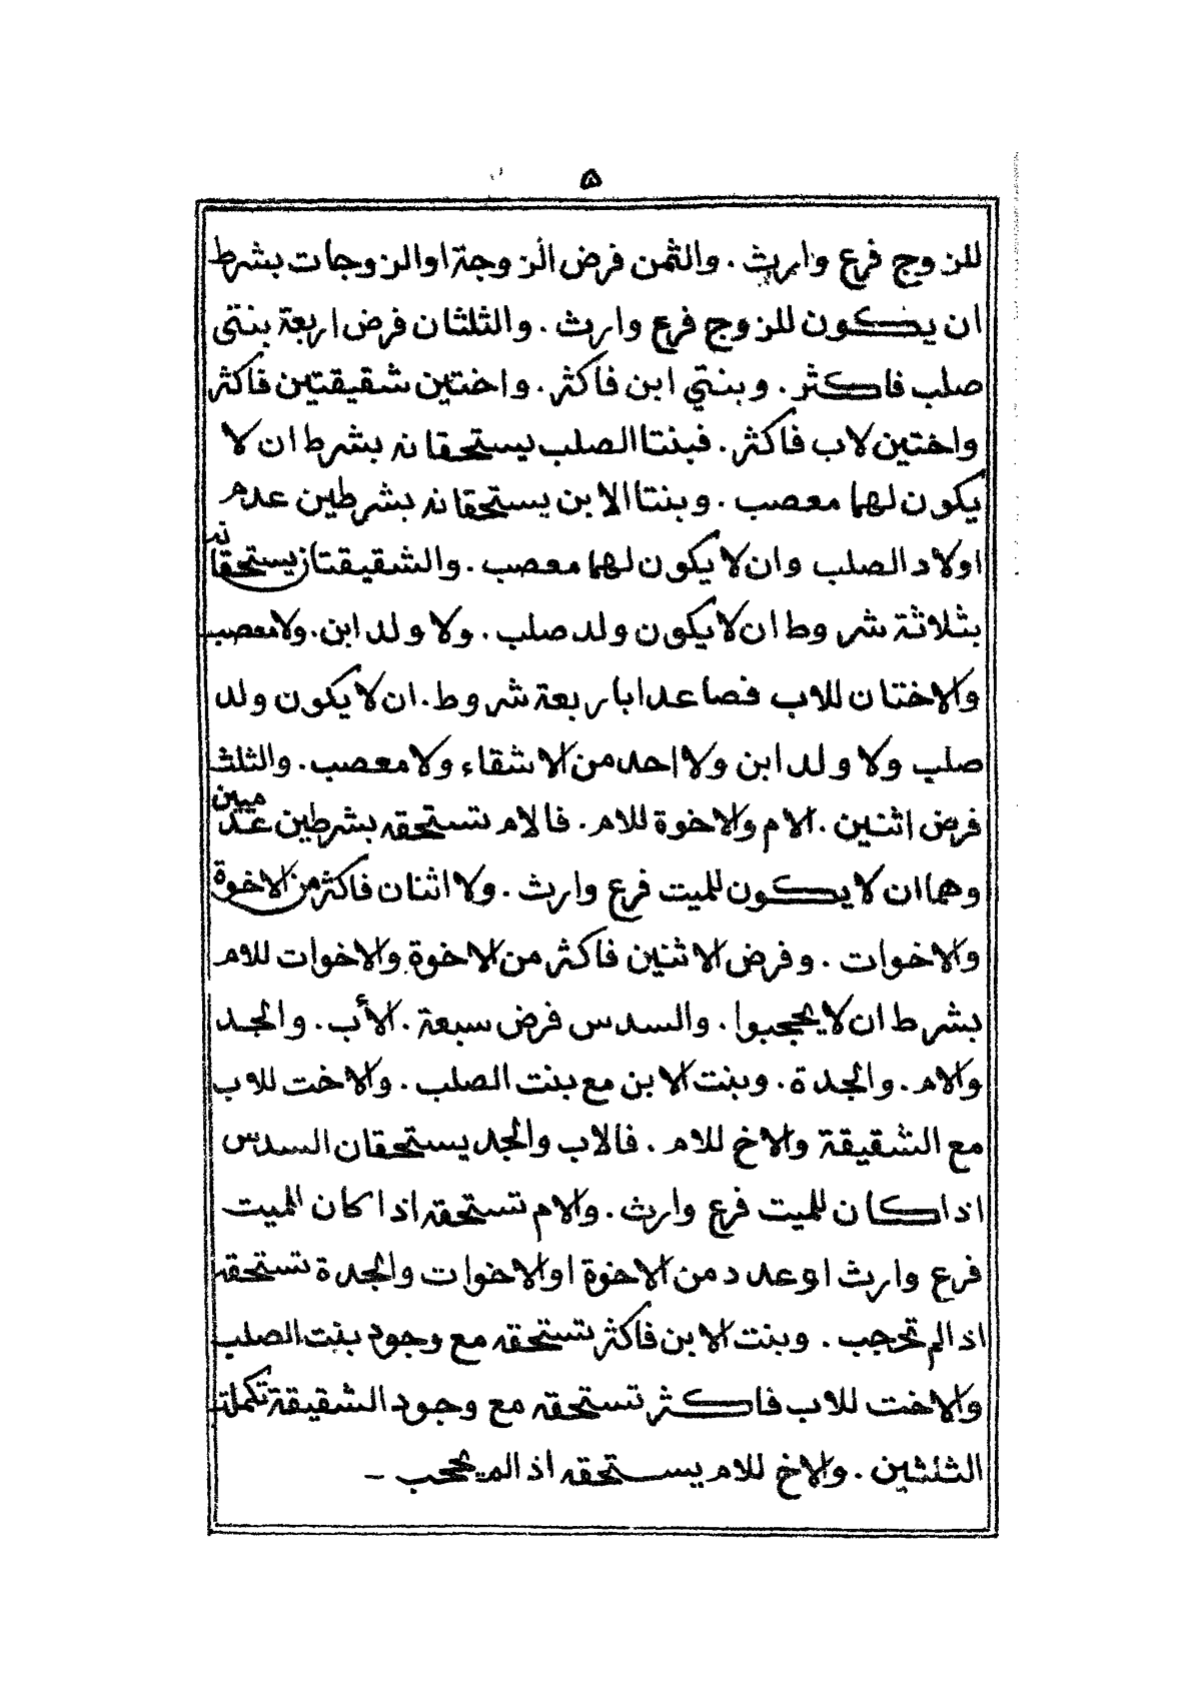 ٥
للزوج فرع وارث . والثمن فرض الزوجة او الزوجات بشرط
ان يكون للزوج فرع وارث . والثلثان فرض اربعة بنتى
صلب فاكثر . وبنتي ابن فاكثر . واختين شقيقتين فاكثر
واختين لاب فاكثر . فبنتا الصلب يستحقانه بشرط ان لا
يكون لهما معصب . وبنتا الابن يستحقانه بشرطين عدم
اولاد الصلب وان لا يكون لهما معصب . والشقيقتان يستحقانه
بثلاثة شروط ان لا يكون ولد صلب . ولا ولد ابن . ولا معصب
والاختان للاب فصاعدا باربعة شروط . ان لا يكون ولد
صلب ولا ولد ابن ولا احد من الاشقاء ولا معصب . والثلث
فرض اثنين . الام والاخوة للام . فالام تستحقه بشرطين عدميين
وهما ان لا يكون للميت فرع وارث . ولا اثنان فاكثر من الاخوة
والاخوات . وفرض الاثنين فاكثر من الاخوة والاخوات للام
بشرط ان لا يحجبوا . والسدس فرض سبعة . الأب . والجد
والام . والجدة . وبنت الابن مع بنت الصلب . والاخت للاب
مع الشقيقة والاخ للام . فالاب والجد يستحقان السدس
اذا كان للميت فرع وارث . والام تستحقه اذا كان للميت
فرع وارث او عدد من الاخوة او الاخوات والجدة تستحقه
اذا لم تحجب . وبنت الابن فاكثر تستحقه مع وجود بنت الصلب
والاخت للاب فاكثر تستحقه مع وجود الشقيقة تكملة
الثلثين . والاخ للام يستحقه اذا لم يحجب –